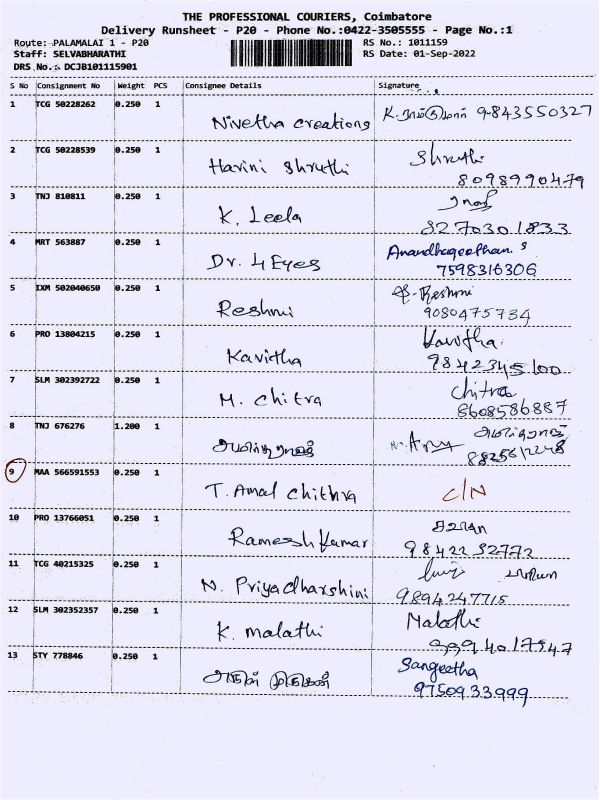 THE PROFESSIONAL COURIERS, Coimbatore
Delivery Runsheet - P20 - Phone No.:0422-3505555 - Page No.:1
Route: PALAMALAI 1 - P20 RS No.: 1011159
Staff: SELVABHARATHI RS Date: 01-Sep-2022
DRS No.: DCJB101115901
S No Consignment No Weight PCS Consignee Details Signature
1 TCG 50228262 0.250 1 Nivetha Creations K. 9843550327
2 TCG 50228539 0.250 1 Harini Shruthi Shruthi
8098990479
3 TNJ 810811 0.250 1 K. Leela
8270301833
4 MRT 563887 0.250 1 Dr. 4 Eyes Anandhageethan. S
7598316306
5 IXM 502040650 0.250 1 Reshmi Reshmi
9080475734
6 PRO 13804215 0.250 1 Kavitha Kavitha.
9842345100
7 SLM 302392722 0.250 1 M. Chitra Chitra
8608586887
8 TNJ 676276 1.200 1
9 MAA 566591553 0.250 1 T. Amal Chithra C/N
10 PRO 13766051 0.250 1 Rameshkumar
9842232772
11 TCG 40215325 0.250 1 N. Priyadharshini
9894247715
12 SLM 302352357 0.250 1 K. Malathi Malathi
9994017547
13 STY 778846 0.250 1 அருண் முருகன் Sangeetha
9750933999